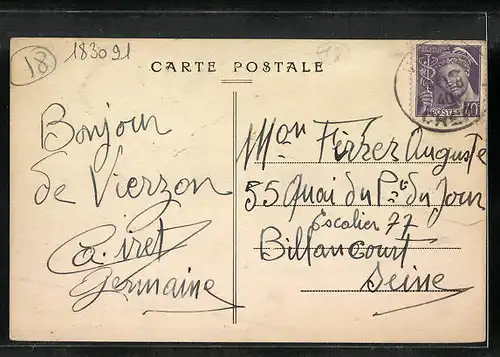 18
183091
CARTE POSTALE
POSTES
40
Bonjour
de Vierzon
Germaine
Mon Ferrer Auguste
55 Quai du Pt du Jour
Escalier 77
Billancourt
Seine